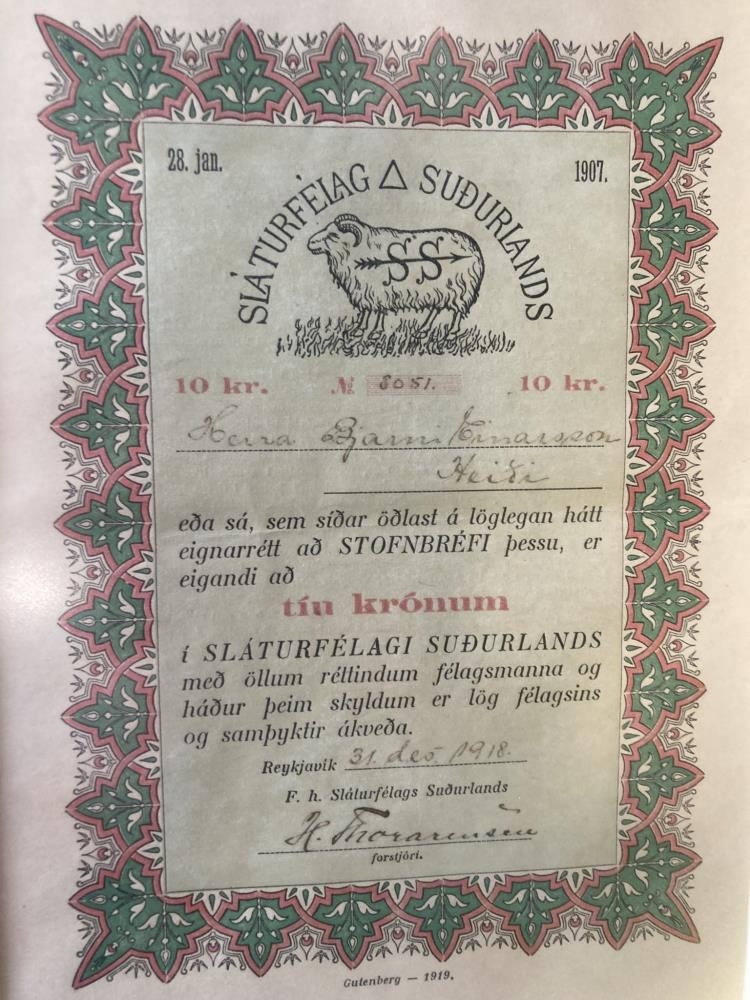 28. jan.
1907.
SLÁTURFÉLAG △ SUÐURLANDS
SS
10 kr. № 8051. 10 kr.
Herra Bjarni Einarsson
Heiði
eða sá, sem síðar öðlast á löglegan hátt
eignarrétt að STOFNBRÉFI þessu, er
eigandi að
tíu krónum
í SLÁTURFÉLAGI SUÐURLANDS
með öllum réttindum félagsmanna og
háður þeim skyldum er lög félagsins
og samþyktir ákveða.
Reykjavík 31. des. 1918.
F. h. Sláturfélags Suðurlands
H. Thorarensen
forstjóri.
Gutenberg — 1919.